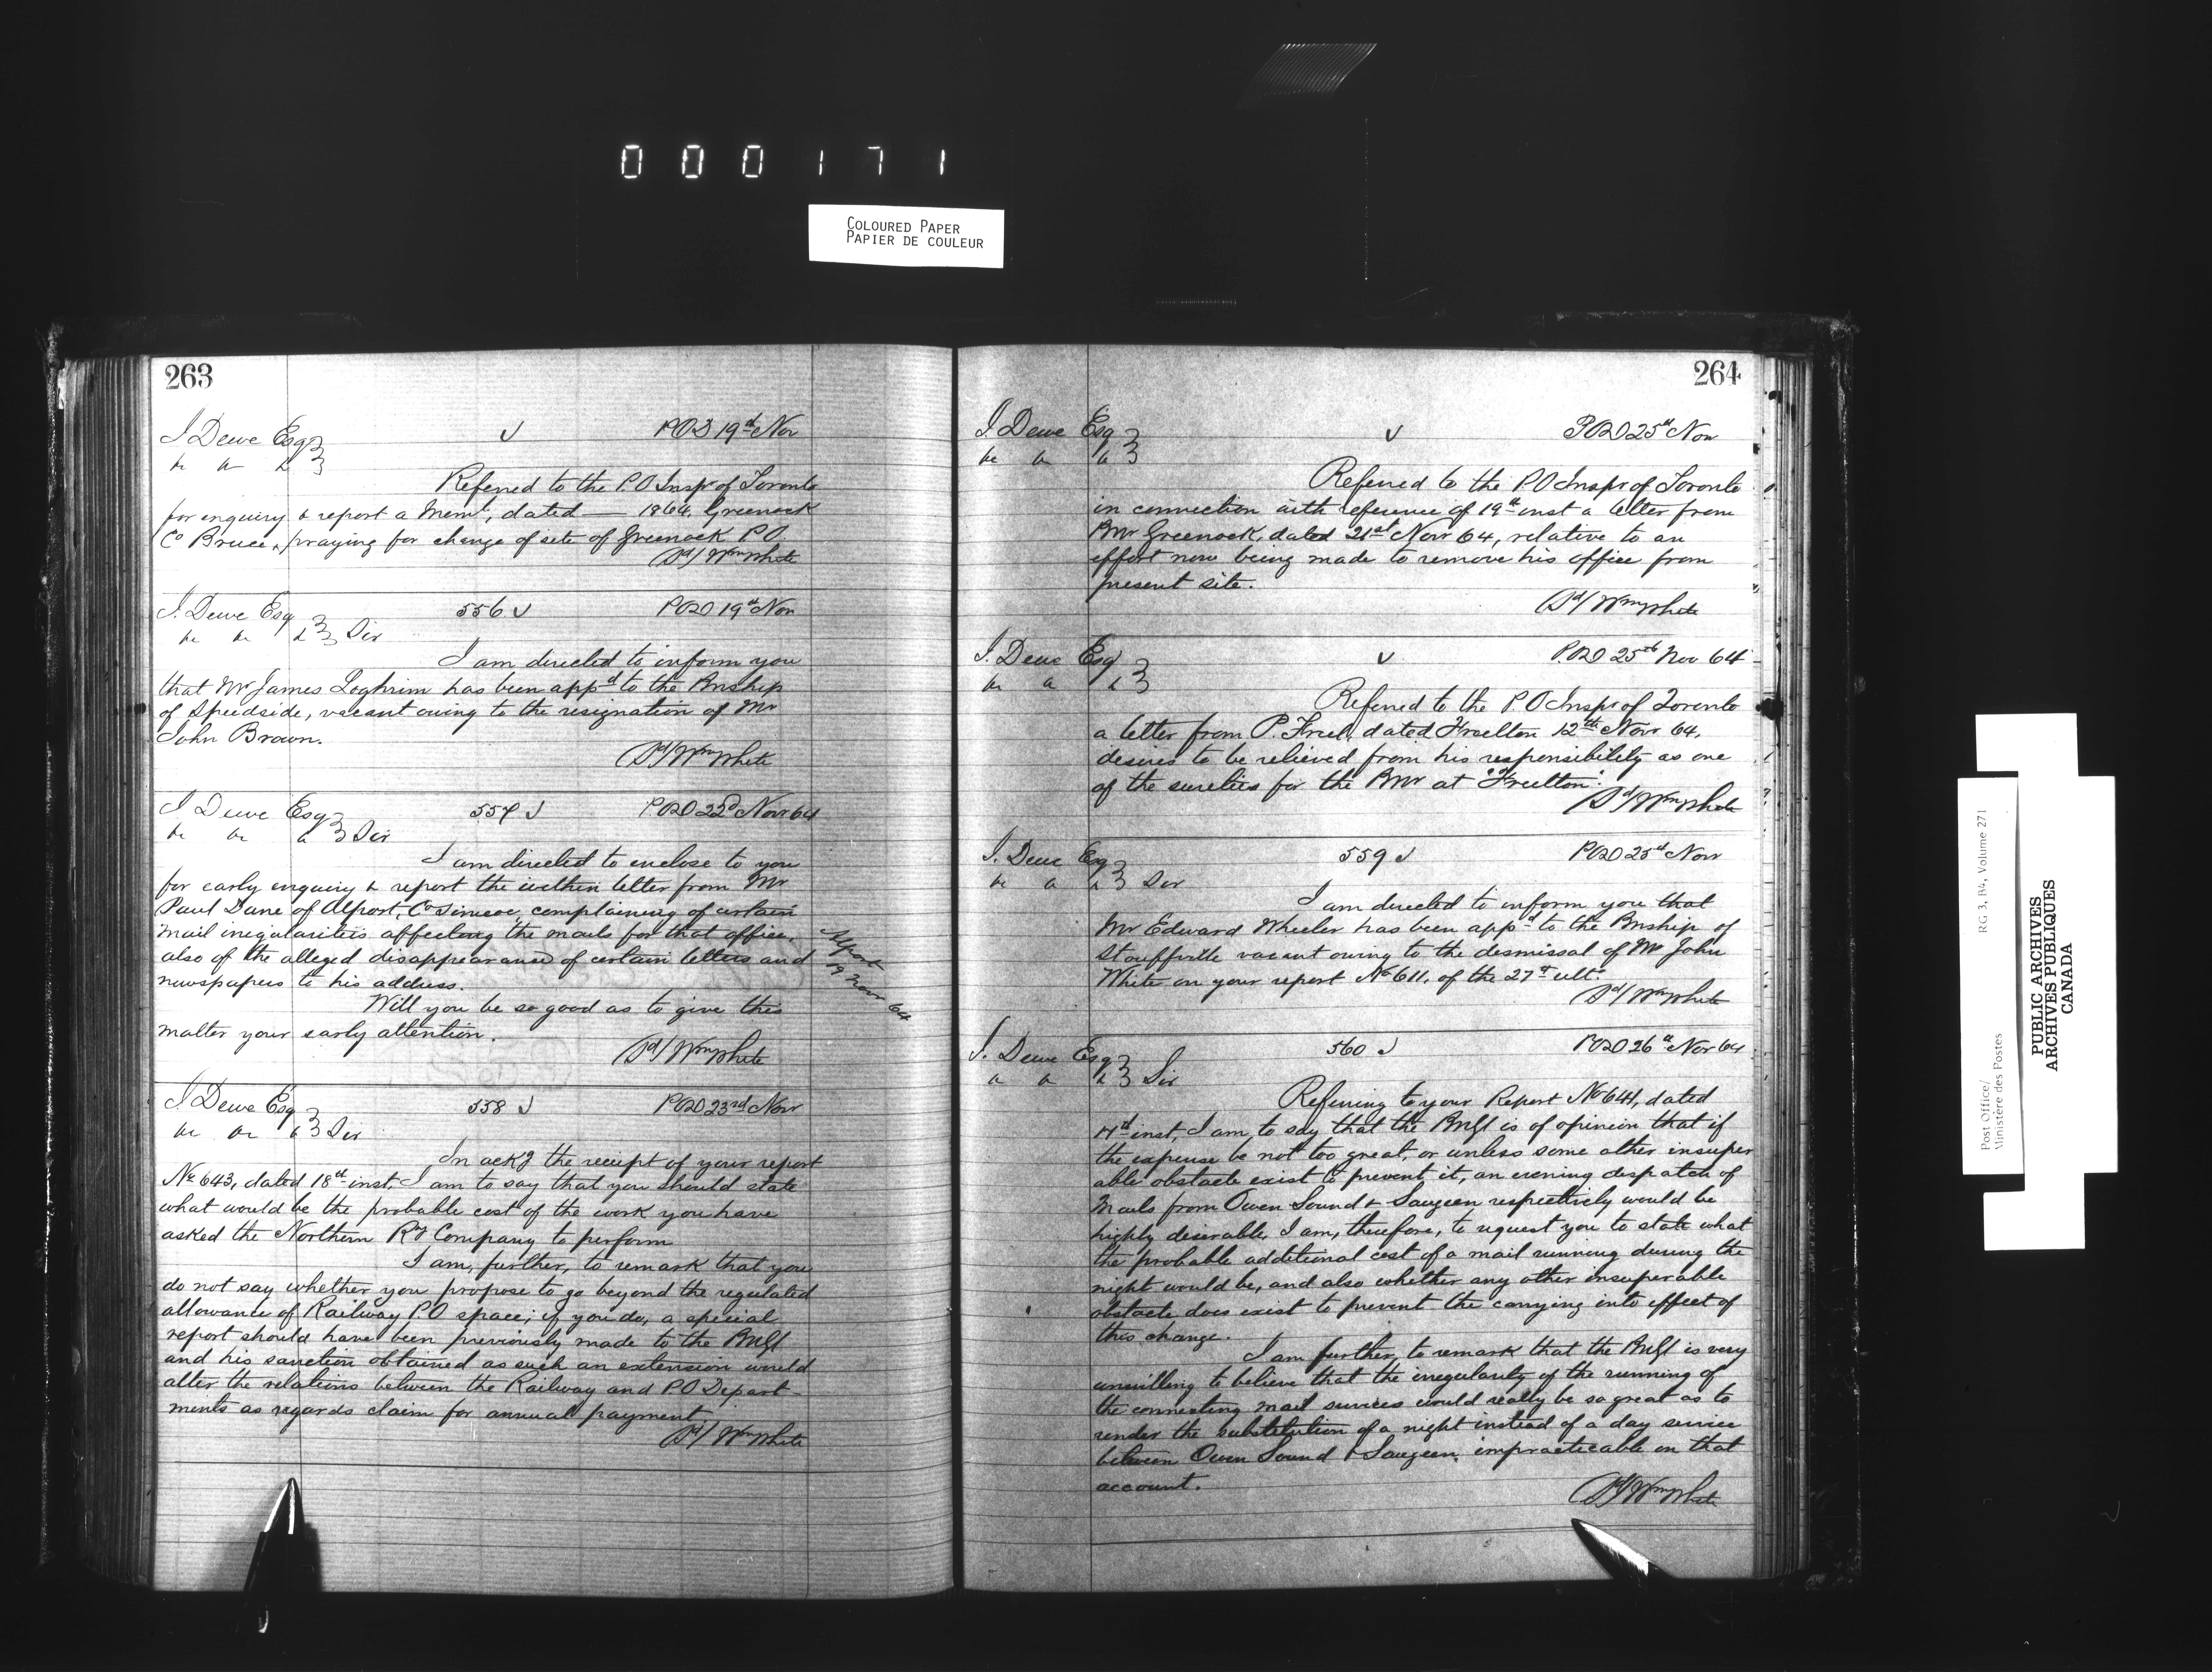 000171
COLOURED PAPER
PAPIER DE COULEUR
263
J Dewe Esq √ POD 19th Nov
&c &c &c
Referred to the P.O Inspr of Toronto
for enquiry & report a Meml, dated — 1864, Greenock
Co Bruce, praying for change of site of Greenock P.O.
Sd/ Wm White
J. Dewe Esq 556 √ POD 19th Nov
&c &c &c Sir
I am directed to inform you
that Mr James Loghrim has been appd to the Pmship
of Speedside, vacant owing to the resignation of Mr
John Brown.
Sd/ Wm White
J Dewe Esq 557 √ POD 22d Novr 64
&c &c &c Sir
I am directed to enclose to you
for early enquiry & report the within letter from Mr
Paul Dane of Alport, Co Simcoe, complaining of certain
mail irregularities affecting the mails for that office,
also of the alleged disappearance of certain letters and
newspapers to his address.
Alport
19 Novr 64
Will you be so good as to give this
matter your early attention.
Sd/ Wm White
J. Dewe Esq 558 √ POD 23rd Novr
&c &c &c Sir
In ackg the receipt of your report
No 643, dated 18th inst, I am to say that you should state
what would be the probable cost of the work you have
asked the Northern Ry Company to perform
I am, further, to remark that you
do not say whether you propose to go beyond the regulated
allowance of Railway P.O space; if you do, a special
report should have been previously made to the PMGl
and his sanction obtained as such an extension would
alter the relations between the Railway and P O Depart-
ments as regards claim for annual payment.
Sd/ Wm White
264
J. Dewe Esq √ POD 25th Nov
&c &c &c
Referred to the P O Inspr of Toronto
in connection with reference of 19th inst a letter from
Pmr Greenock, dated 21st Novr 64, relative to an
effort now being made to remove his office from
present site.
Sd/ Wm White
J. Dewe Esq √ P.OD 25th Nov 64
&c &c &c
Referred to the P.O Inspr of Toronto
a letter from P. Freel, dated Freelton 12th Novr 64,
desires to be relieved from his responsibility as one
of the sureties for the Pmr at "Freelton".
Sd/ Wm White
J. Dewe Esq 559 √ POD 25th Nov
&c &c &c Sir
I am directed to inform you that
Mr Edward Wheeler has been appd to the Pmship of
Stouffville vacant owing to the dismissal of Mr John
White on your report No 611, of the 27th ulto.
Sd/ Wm White
J. Dewe Esq 560 √ POD 26th Nov 64
&c &c &c Sir
Referring to your Report No 641, dated
inst, I am to say that the PMGl is of opinion that if
the expense be not too great, or unless some other insuper
able obstacle exist to prevent it, an evening despatch of
mails from Owen Sound & Saugeen respectively would be
highly desirable. I am, therefore, to request you to state what
the probable additional cost of a mail running during the
night would be, and also whether any other insuperable
obstacle does exist to prevent the carrying into effect of
this change.
I am further, to remark that the PMGl is very
unwilling to believe that the irregularity of the running of
the connecting mail services could really be so great as to
render the substitution of a night instead of a day service
between Owen Sound & Saugeen, impracticable on that
account.
Sd/ Wm White
Post Office/ RG 3, B4, Volume 271
Ministère des Postes
PUBLIC ARCHIVES
ARCHIVES PUBLIQUES
CANADA